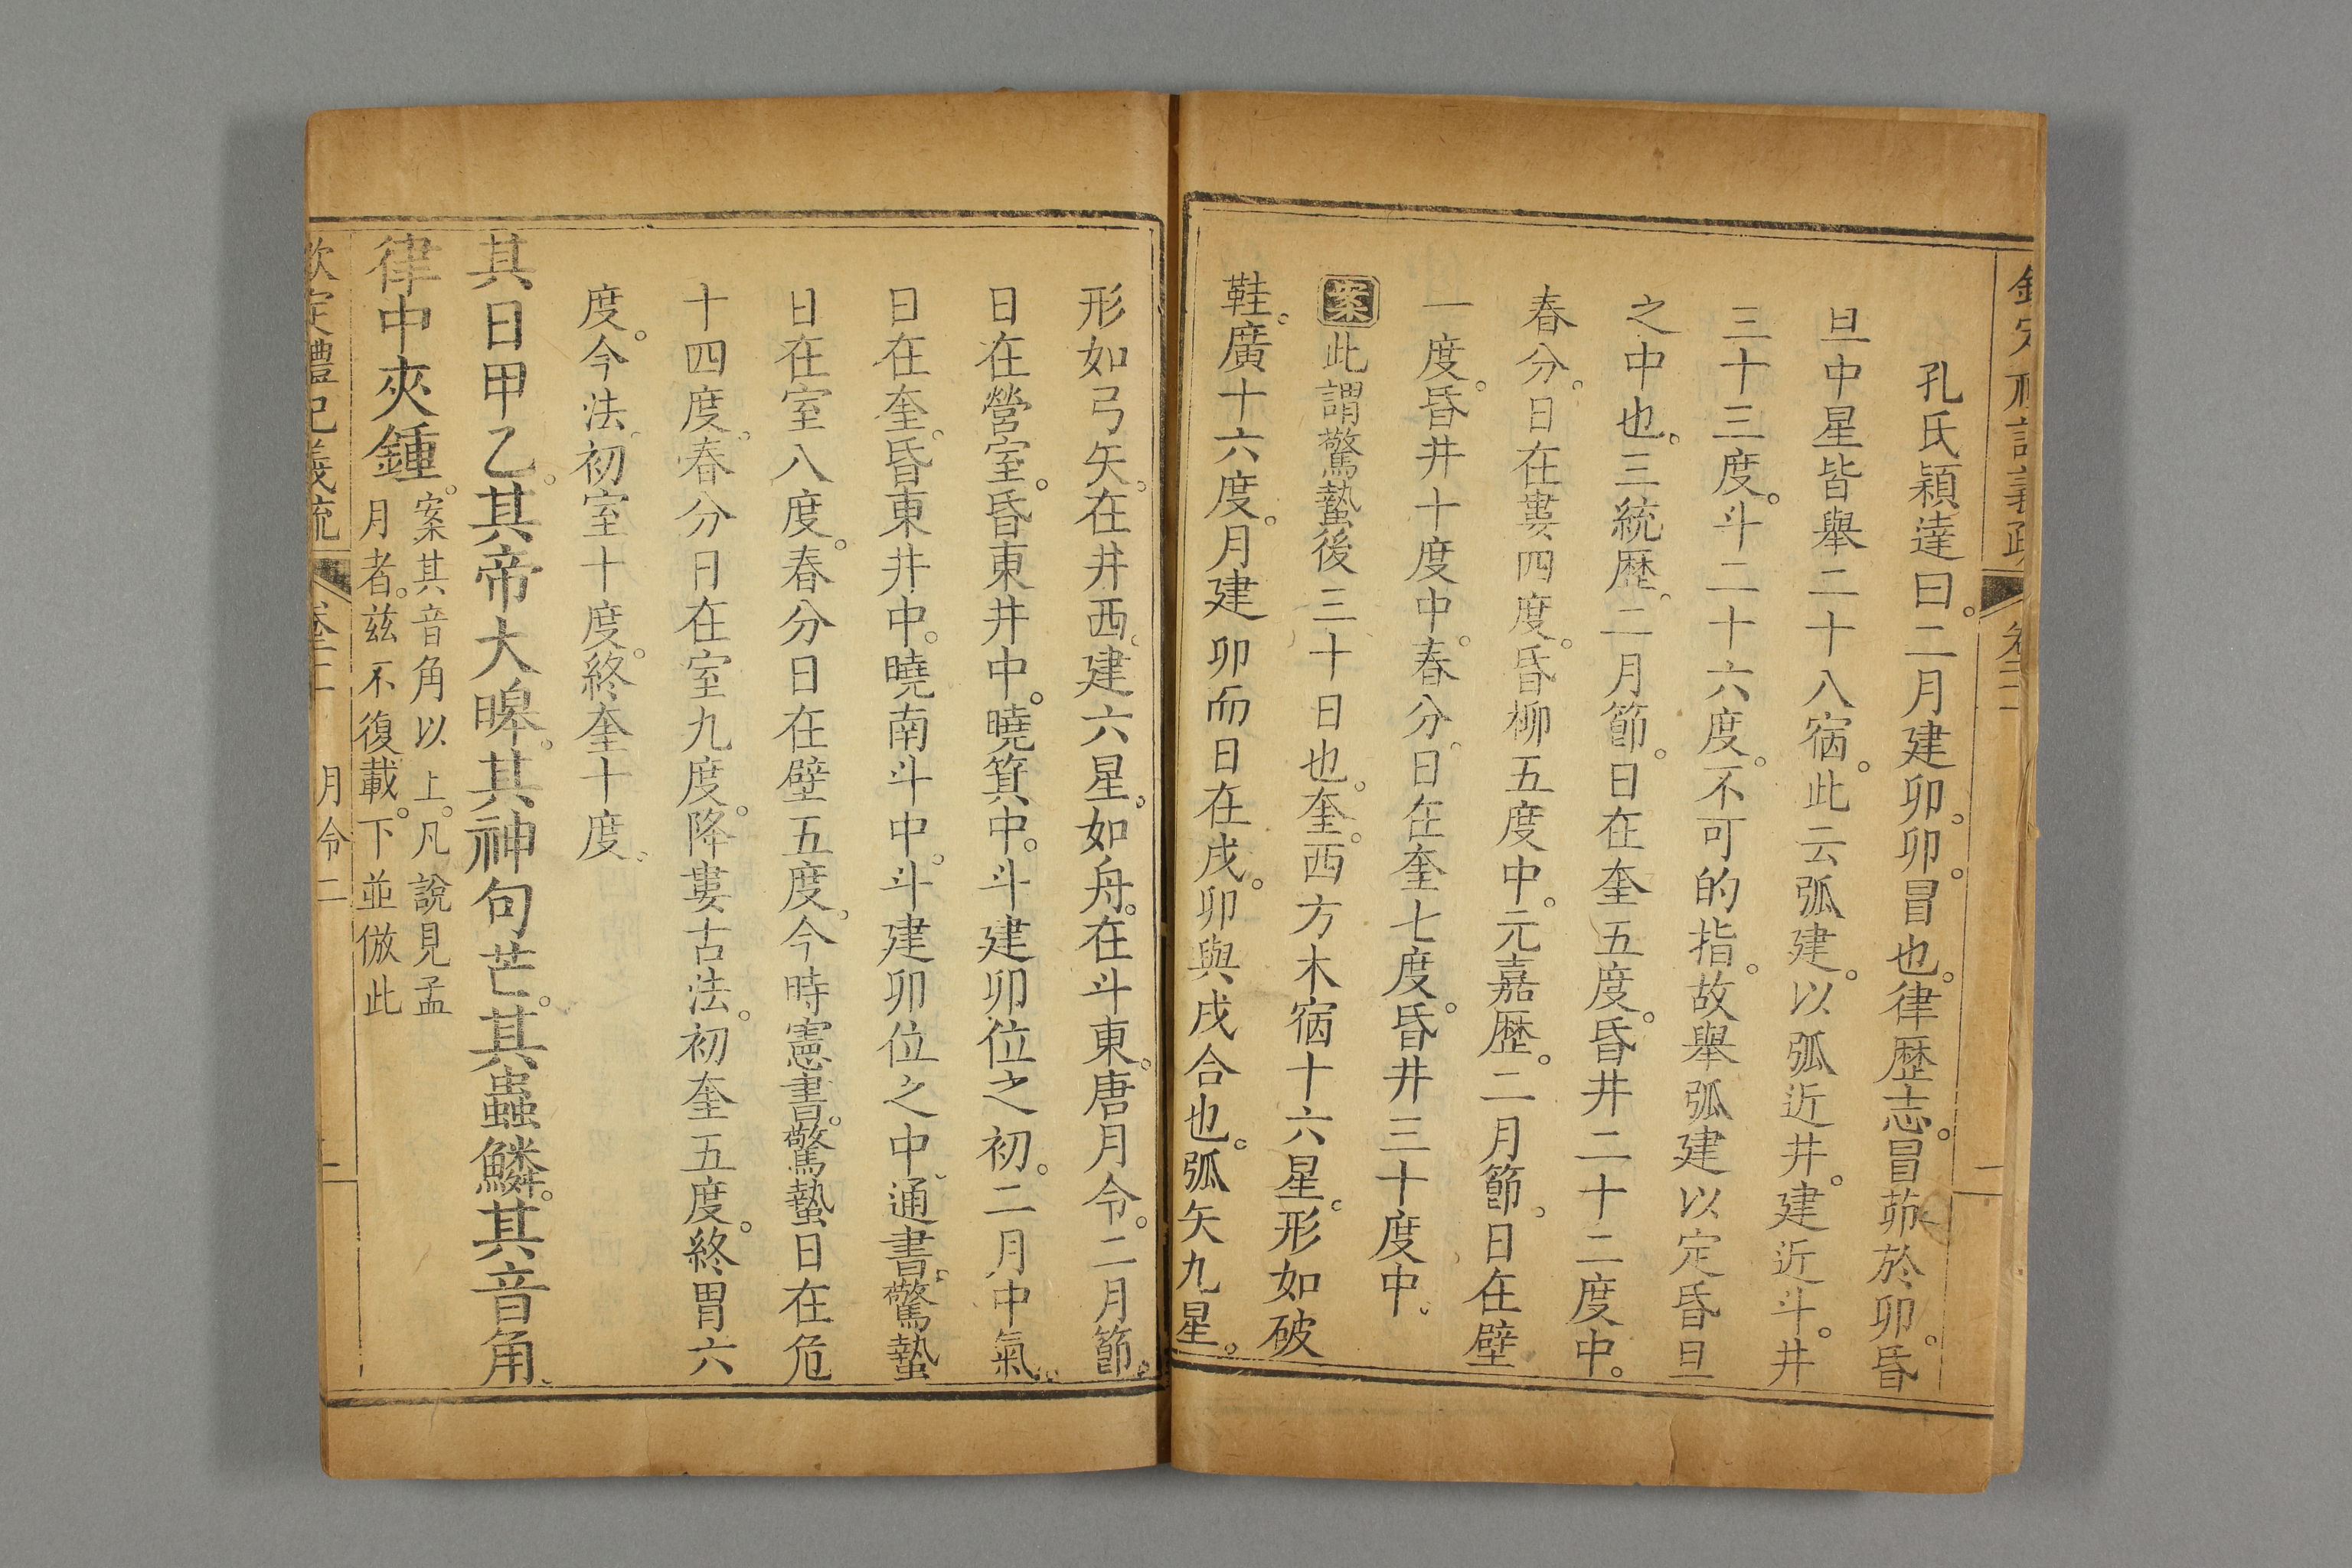 孔氏穎達曰。二月建卯。卯。冒也。律歷志。冒茆於卯。昏
旦中星皆舉二十八宿。此云弧建。以弧近井。建近斗。井
三十三度。斗二十六度。不可的指。故舉弧建以定昏旦
之中也。三統歷。二月節。日在奎五度。昏井二十二度中。
春分。日在婁四度。昏柳五度中。元嘉歷。二月節。日在壁
一度。昏井十度中。春分。日在奎七度。昏井三十度中。
案此謂驚蟄後三十日也。奎。西方木宿十六星。形如破
鞋。廣十六度。月建卯而日在戌。卯與戌合也。弧矢九星。
形如弓矢。在井西。建六星。如舟。在斗東。唐月令。二月節。
日在營室。昏東井中。曉箕中。斗建卯位之初。二月中氣。
日在奎。昏東井中。曉南斗中。斗建卯位之中。通書。驚蟄
日在室八度。春分日在壁五度。今時憲書。驚蟄日在危
十四度。春分日在室九度。降婁古法。初奎五度。終胃六
度。今法。初室十度。終奎十度。
其日甲乙。其帝大皞。其神句芒。其蟲鱗。其音角。
律中夾鍾。案其音角以上。凡說見孟
月者。茲不復載。下並倣此
欽定禮記義疏 卷二十 月令二 二